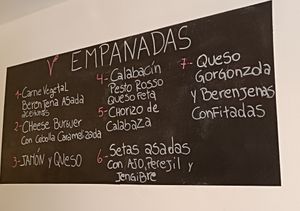 V EMPANADAS
1- Carne Vegetal
Berenjena Asada
aceitunas
2- Cheese Burguer
con Cebolla Caramelizada
3- JAMÓN y QUESO
4- Calabacín
Pesto Rosso
Queso Feta
5- Chorizo de
Calabaza
6- Setas asadas
con AJO, Perejil y
Jengibre
7- Queso
Gorgonzola
y Berenjenas
Confitadas